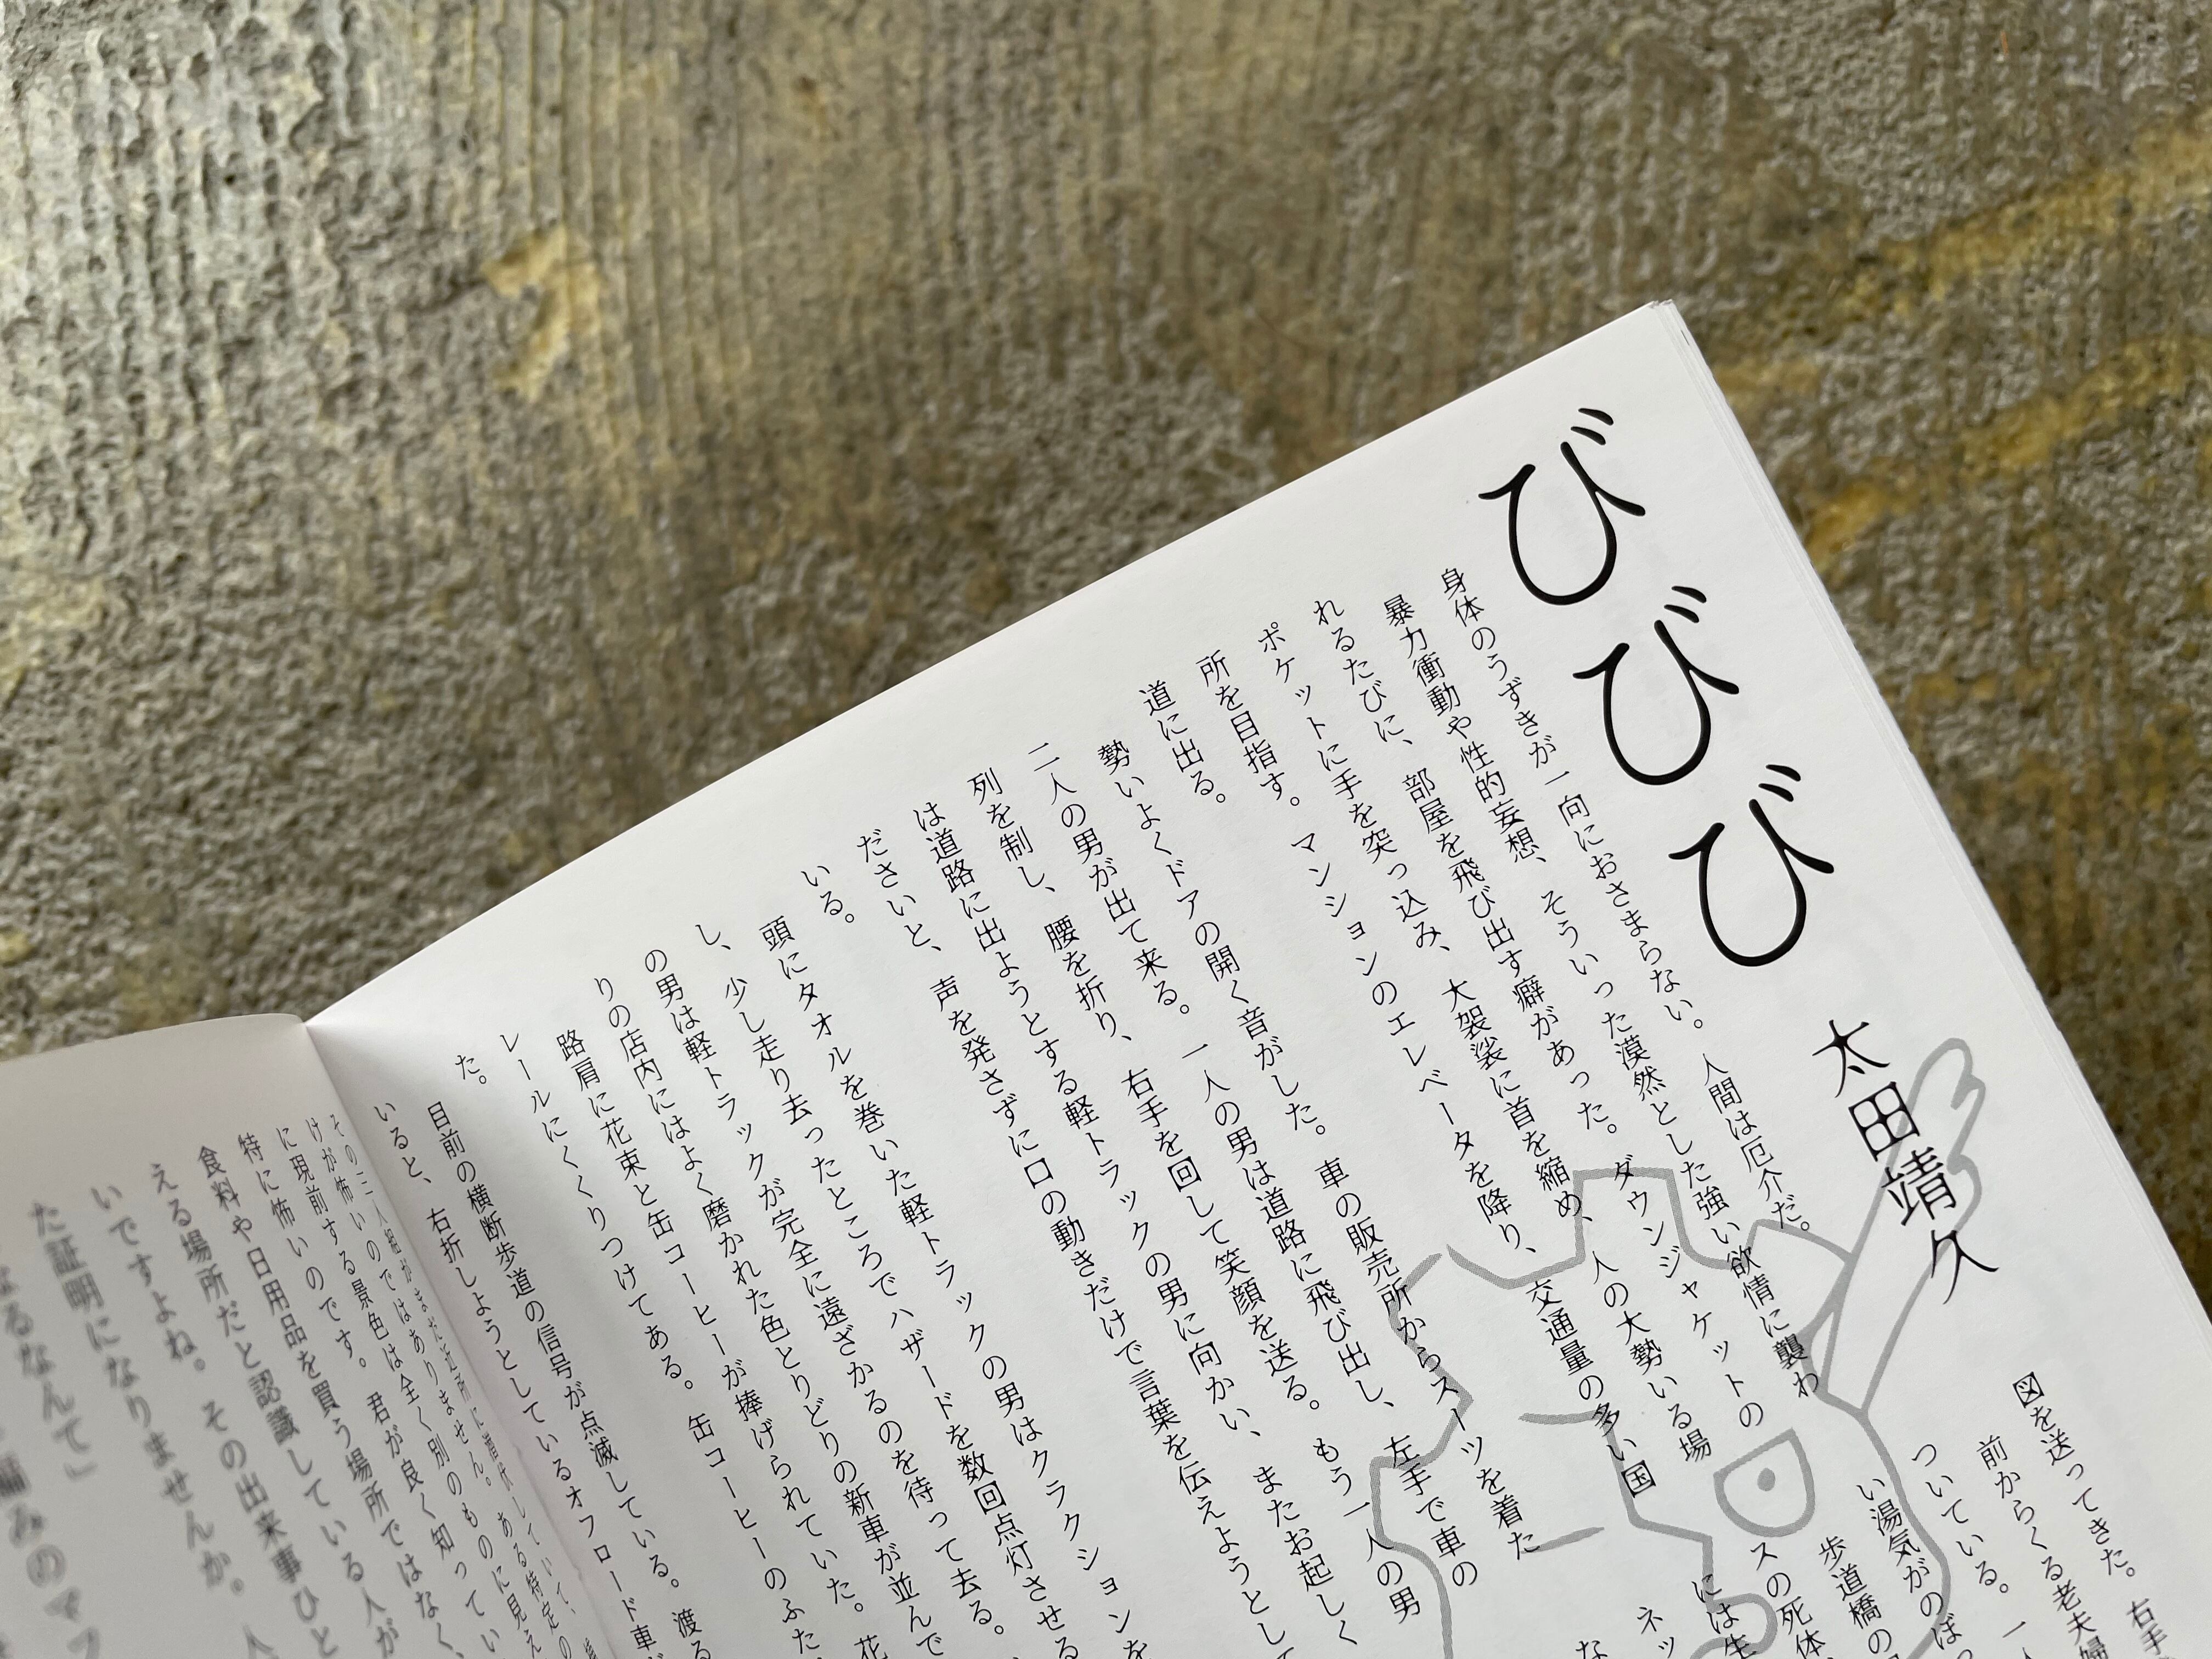 びびび
太田靖久
身体のうずきが一向におさまらない。人間は厄介だ。
暴力衝動や性的妄想、そういった漠然とした強い欲情に襲わ
れるたびに、部屋を飛び出す癖があった。ダウンジャケットの
ポケットに手を突っ込み、大袈裟に首を縮め、人の大勢いる場
所を目指す。マンションのエレベータを降り、交通量の多い国
道に出る。
勢いよくドアの開く音がした。車の販売所からスーツを着た
二人の男が出て来る。一人の男は道路に飛び出し、左手で車の
列を制し、腰を折り、右手を回して笑顔を送る。もう一人の男
は道路に出ようとする軽トラックの男に向かい、またお起しく
ださいと、声を発さずに口の動きだけで言葉を伝えようとして
いる。
頭にタオルを巻いた軽トラックの男はクラクションを
し、少し走り去ったところでハザードを数回点灯させる
の男は軽トラックが完全に遠ざかるのを待って去る。
りの店内にはよく磨かれた色とりどりの新車が並んで
路肩に花束と缶コーヒーが捧げられていた。花
レールにくくりつけてある。缶コーヒーのふた
た。
目前の横断歩道の信号が点滅している。渡る
いると、右折しようとしているオフロード車が
図を送ってきた。右手
前からくる老夫婦
ついている。一人
い湯気がのぼっ
歩道橋の
スの死体
には生
ネッ
な
けが怖いのではありません。ある特定の
に現前する景色は全く別のものに見え
特に怖いのです。君が良く知ってい
食料や日用品を買う場所ではなく、
える場所だと認識している人が
いですよね。その出来事ひと
た証明になりませんか。人
なるなんて」
編みのマフ